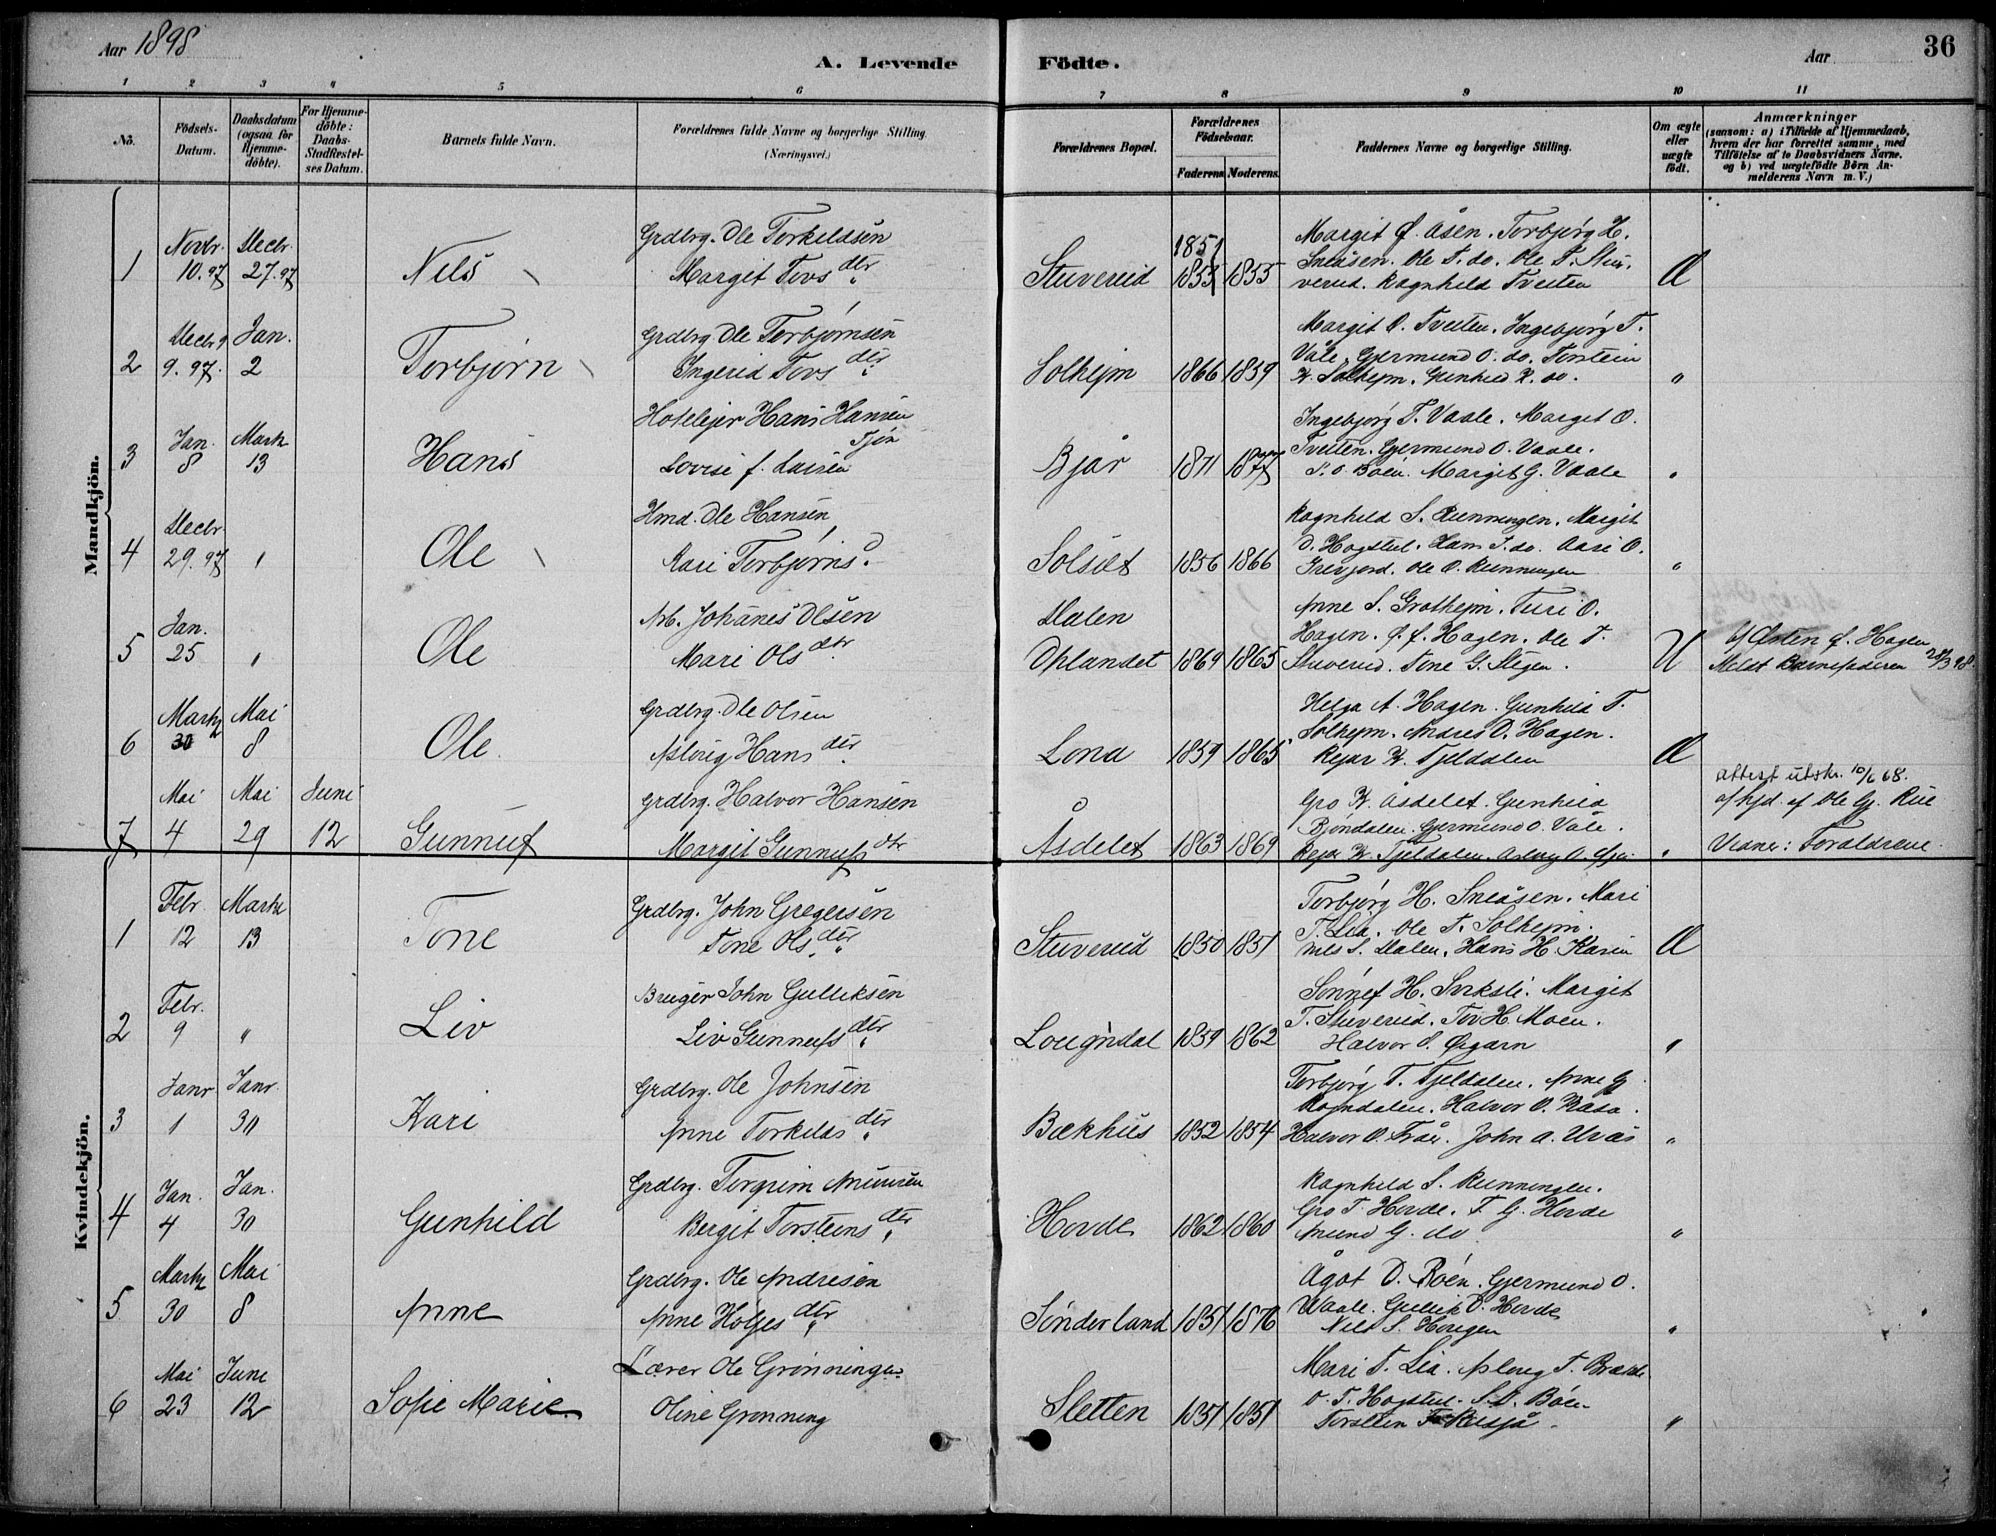 Aar 1898
A. Levende Födte.
Aar
36
1 2 3 4 5 6 7 8 9 10 11
No.
Födsels-Datum.
Daabsdatum (ogsaa for Hjemme-döbte).
For Hjemme-döbte: Daabs-Stadfestel-ses Datum.
Barnets fulde Navn.
Forældrenes fulde Navne og borgerlige Stilling. (Næringsvei.)
Forældrenes Bopæl.
Forældrenes Födselsaar.
Faderens Moderens.
Faddernes Navne og borgerlige Stilling.
Om ægte eller uægte födt.
Anmærkninger
(saasom: a) i Tilfælde af Hjemmedaab, hvem der har forrettet samme, med Tilföielse af to Daabsvidners Navne. og b) ved uægtefödte Börn An-melderens Navn m. V.)
Mandkjön.
1 Novbr. 10.97 Decbr. 27.97 Nils
Grdbrg. Ole Torkildsen
Margit Tovs dtr
Stuverud 1851 1855 1855
Margit Ø. Åsen. Torbjørg H.
Sneåsen. Ole T. do. Ole T. Stu-
verud. Ragnhild Tveiten
Æ
2 Decbr 9.97. Jan. 2 Torbjørn
Grdbrg. Ole Torbjørnsen
Ingerid Tovs dtr
Solhejm 1866 1859
Margit O. Tveiten. Ingebjørg T.
Våle. Gjermund O. do. Torstein
K. Solhejm. Gunhild K. do.
"
3 Jan. 8 Marts 13 Hans
Hotelejer Hans Hansen
Tjøn
Lovise f. Larsen
Bjår 1871 1877
Ingebjørg T. Vaale. Marget O.
Tveiten. Gjermund O. Vaale.
Bøen. Margit G. Vaale
"
4 Decbr 29.97 " Ole
Hmd. Ole Hansen
Kari Torbjørns d.
Solsilt 1856 1866
Ragnhild S. Runningen. Margit
O. Hogstul. Hans T. do. Aase O.
Grevjord. Ole O. Runningen
"
5 Jan. 25 " Ole
Arb. Johanes Olsen
Mari Ols dtr.
Dalen
Oplandet 1869 1865
Anne S. Grothejm. Turi O.
Hagen. Ø. f. Hagen. Ole T.
Stuverud. Tone G. Stigen.
U
b/ Østen Ø. Hagen
Meldt Barnefaderen 28/3 98.
6 Marts 30 Mai 8 Ole.
Grdbrg. Ole Olsen
Asloug Hans dtr.
Lona 1859 1865
Helga A. Hagen. Gunhild T.
Solhejm. Andres O. Hagen.
Rejar K. Tjeldalen
Æ
7 Mai 4 Mai 29 Juni 12 Gunnuf
Grdbrg. Halvor Hansen
Margit Gunnufs dtr
Åsdelet 1863 1869
Gro K. Åsdelet. Gunhild
Bjøndalen. Gjermund O. Våle.
Rejar K. Tjeldalen. Aslaug O.
"
attest utskr. 10/6 68.
af hjd. af Ole Gj. Rue
Vidner: Foraldrene.
Kvindekjön.
1 Febr. 12 Marts 13 Tone
Grdbrg. John Gregersen
Tone Ols dtr
Stuverud 1850 1851
Torbjørg H. Sneåsen. Mari
T. Lia. Ole T. Solhejm.
Nils S. Dalen. Hans H. Kasin
Æ
2 Febr. 9 " Liv
Bruger John Gulliksen
Liv Gunnufs dtr
Lougndal 1859 1862
Sønnef H. Svksli. Margit
T. Stuverud. Tov H. Moen.
Halvor S. Øygarn
"
3 Janr 1 Janr. 30 Kari
Grdbrg. Ole Johnsen
Anne Torkilds dtr
Bækhus 1852 1854
Torbjørg T. Tjeldalen. Anne G
Rogndalen. Halvor O. Rasa.
Halvor O. Tråe. John A. Urås
"
4 Jan. 4 Jan. 30 Gunhild
Grdbrg. Torgrim Amunsen
Bergit Torsteins dtr
Hovde 1862 1860
Ragnhild S. Runningen.
Gro T. Hovde. T. G. Hovde
Amund G. do
"
5 Marts 30 Mai 8 Anne
Grdbrg. Ole Andresen
Anne Holjes dtr
Sønderland 1851 1876
Ågot O. Bøen. Gjermund O.
Waale. Gullik O. Hovde
Nils S. Hougen
"
6 Mai 23 Juni 12 Sofie Marie.
Lærer Ole Grønningen
Oline Grønning
Sletten 1851 1851
Mari T. Lia. Asloug T.
O. T. Hogstul. S. O. Bøen
Torstein
"